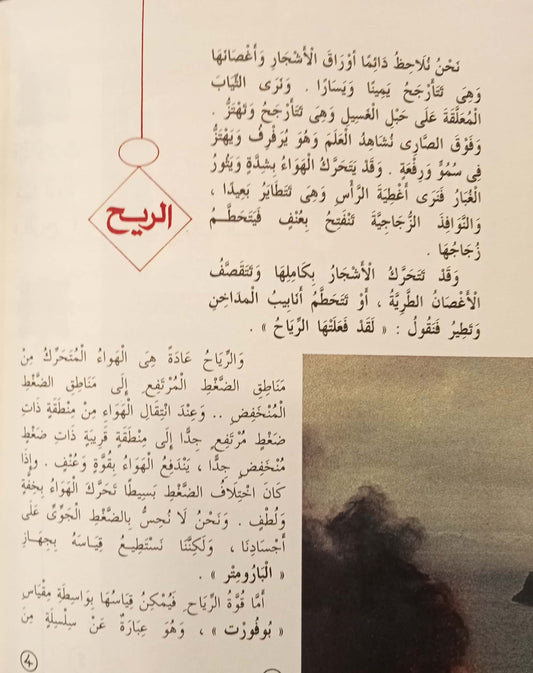 الريح
نَحْنُ نُلَاحِظُ دَائِمًا أوْرَاقَ الْأَشْجَارِ وَأَغْصَانَهَا
وَهِىَ تَتَأَرْجَحُ يَمِينًا وَيَسَارًا . وَنَرَى الثِّيَابَ
الْمُعَلَّقَةَ عَلَى حَبْلِ الْغَسِيلِ وَهِىَ تَتَأَرْجَحُ وَتَهْتَزُّ .
وَفَوْقَ الصَّارِى نُشَاهِدُ الْعَلَمَ وَهُوَ يُرَفْرِفُ وَيَهْتَزُّ
فِى سُمُوٍّ وَرِفْعَةٍ . وَقَدْ يَتَحَرَّكُ الْهَوَاءُ بِشِدَّةٍ وَيَثُورُ
الْغُبَارُ فَنَرَى أَغْطِيَةَ الرَّأْسِ وَهِىَ تَتَطَايَرُ بَعِيدًا ،
وَالنَّوَافِذَ الزُّجَاجِيَّةَ تَنْفَتِحُ بِعُنْفٍ فَيَتَحَطَّمُ
زُجَاجُهَا .
وَقَدْ تَتَحَرَّكُ الْأَشْجَارُ بِكَامِلِهَا وَتَتَقَصَّفُ
الْأَغْصَانُ الطَّرِيَّةُ ، أَوْ تَتَحَطَّمُ أَنَابِيبُ الْمَدَاخِنِ
وَتَطِيرُ فَنَقُولُ : « لَقَدْ فَعَلَتْهَا الرِّيَاحُ » .
وَالرِّيَاحُ عَادَةً هِىَ الْهَوَاءُ الْمُتَحَرِّكُ مِنْ
مَنَاطِقِ الضَّغْطِ الْمُرْتَفِعِ إِلَى مَنَاطِقِ الضَّغْطِ
الْمُنْخَفِضِ .. وَعِنْدَ انْتِقَالِ الْهَوَاءِ مِنْ مِنْطَقَةٍ ذَاتِ
ضَغْطٍ مُرْتَفِعٍ جِدًّا إِلَى مِنْطَقَةٍ قَرِيبَةٍ ذَاتِ ضَغْطٍ
مُنْخَفِضٍ جِدًّا ، يَنْدَفِعُ الْهَوَاءُ بِقُوَّةٍ وَعُنْفٍ . وإِذَا
كَانَ اخْتِلَافُ الضَّغْطِ بَسِيطًا تَحَرَّكَ الْهَوَاءُ بِخِفَّةٍ
وَلُطْفٍ . وَنَحْنُ لَا نُحِسُّ بِالضَّغْطِ الْجَوِّىِّ عَلَى
أَجْسَادِنَا ، وَلَكِنَّنَا نَسْتَطِيعُ قِيَاسَهُ بِجِهَازِ
« الْبَارُومِتْر » .
أَمَّا قُوَّةُ الرِّيَاحِ فَيُمْكِنُ قِيَاسُهَا بِوَاسِطَةِ مِقْيَاسِ
« بُوفُورْت » ، وَهُوَ عِبَارَةٌ عَنْ سِلْسِلَةٍ مِنَ
٤